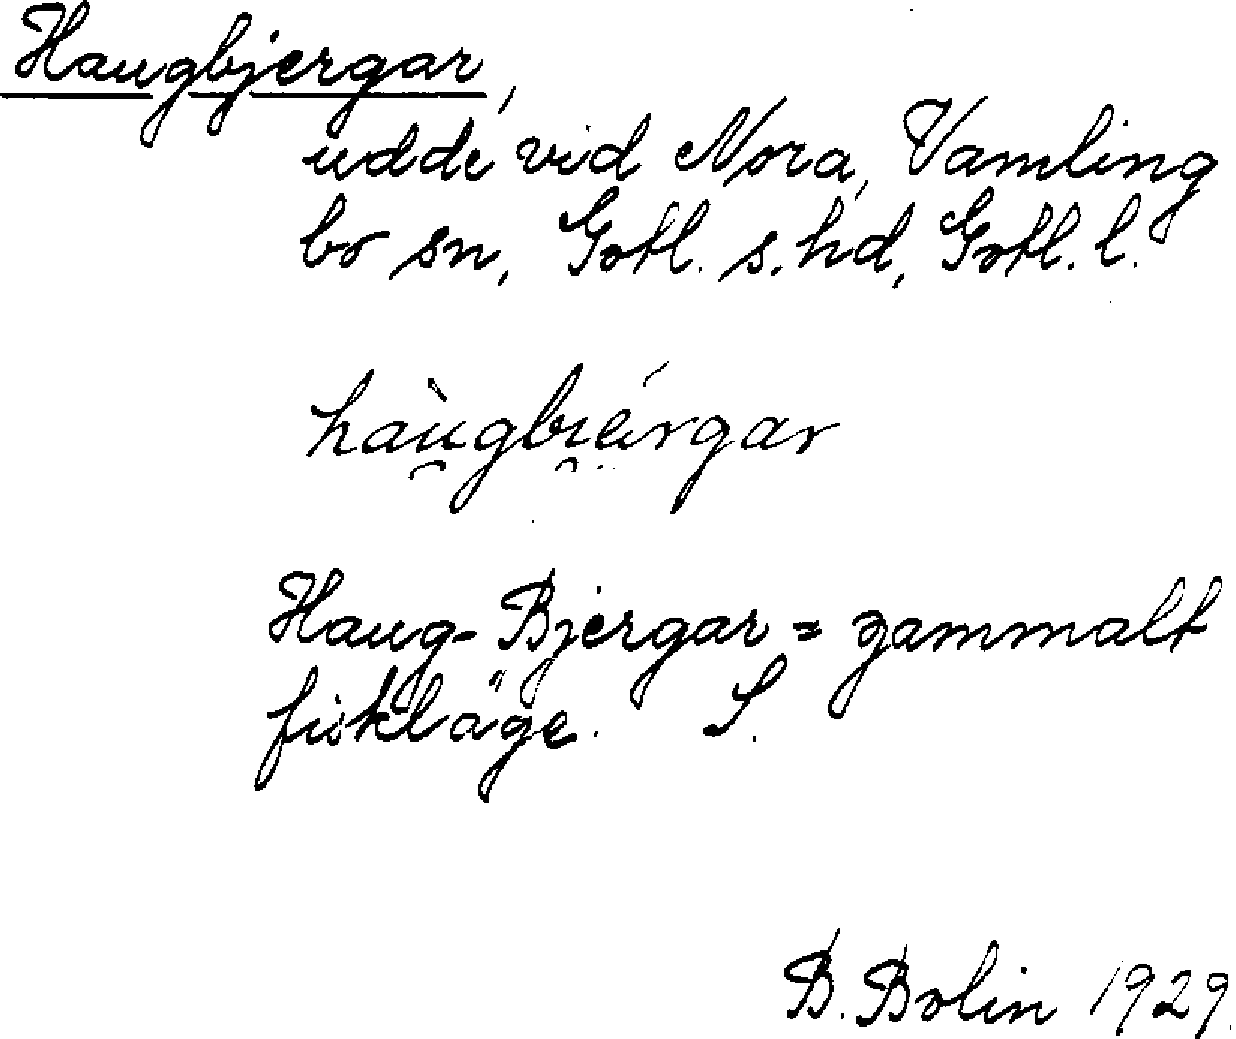 Haugbjergar,
udde vid Nora, Vamling
bo sn, Gotl. s. hd, Gotl. l.
haù̯gbi̯ẹárgar
Haug-Bjergar = gammalt
fiskläge. S.
B. Bolin 1929.